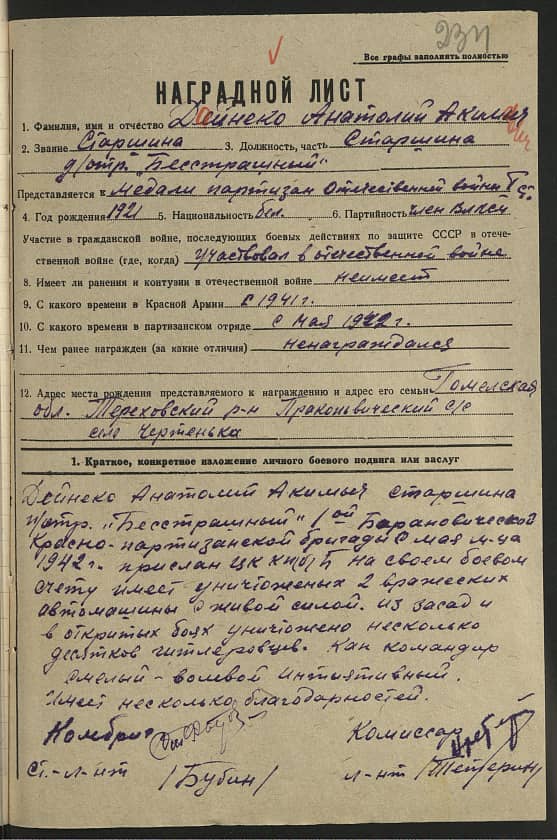 Все графы заполнять полностью
НАГРАДНОЙ ЛИСТ
1. Фамилия, имя и отчество Дейнеко Анатолий Акимыч
2. Звание Старшина 3. Должность, часть Старшина
п/отр. "Бесстрашный"
Представляется к Медали партизан Отечественной войны I ст.
4. Год рождения 1921 5. Национальность бел. 6. Партийность член ВЛКСМ
Участие в гражданской войне, последующих боевых действиях по защите СССР в отече-
ственной войне (где, когда) Участвовал в отечественной войне
8. Имеет ли ранения и контузии в отечественной войне неимеет
9. С какого времени в Красной Армии с 1941 г.
10. С какого времени в партизанском отряде с Мая 1942 г.
11. Чем ранее награжден (за какие отличия) ненаграждался
12. Адрес места рождения представляемого к награждению и адрес его семьи Гомельская
обл. Тереховский р-н с/с
село Чертенька
1. Краткое, конкретное изложение личного боевого подвига или заслуг
Дейнеко Анатолий Акимыч старшина
п/отр. "Бесстрашный" 1ой Барановической
Красно-партизанской бригады с мая м-ца
1942 г. прислан ЦК КП(б)Б На своем боевом
счету имеет уничтоженых 2 вражеских
автомашины с живой силой. Из засад и
в открытых боях уничтожено несколько
десятков гитлеровцев. Как командир
смелый - волевой
Имеет несколько благодарностей.
Комбриг Комиссар
Ст.-л-нт /Бубин/ л-нт /Тетерин/